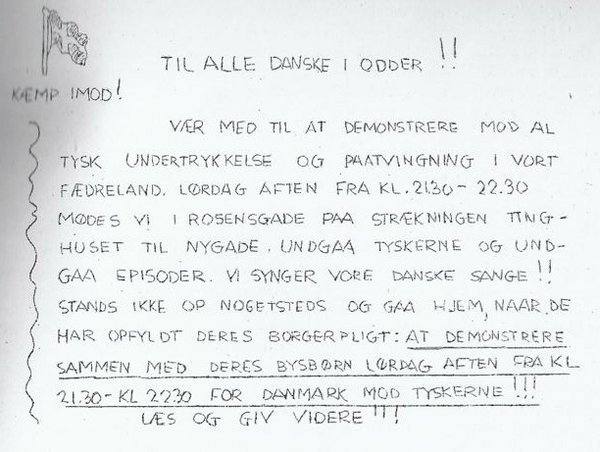 TIL ALLE DANSKE I ODDER !!
KÆMP IMOD!
VÆR MED TIL AT DEMONSTRERE MOD AL
TYSK UNDERTRYKKELSE OG PAATVINGNING I VORT
FÆDRELAND. LØRDAG AFTEN FRA KL. 21.30 - 22.30
MØDES VI I ROSENSGADE PAA STRÆKNINGEN TING-
HUSET TIL NYGADE. UNDGAA TYSKERNE OG UND-
GAA EPISODER. VI SYNGER VORE DANSKE SANGE!!
STANDS IKKE OP NOGETSTEDS OG GAA HJEM, NAAR DE
HAR OPFYLDT DERES BORGERPLIGT: AT DEMONSTRERE
SAMMEN MED DERES BYSBØRN LØRDAG AFTEN FRA KL
21.30 - KL 22.30 FOR DANMARK MOD TYSKERNE!!!
LÆS OG GIV VIDERE!!!